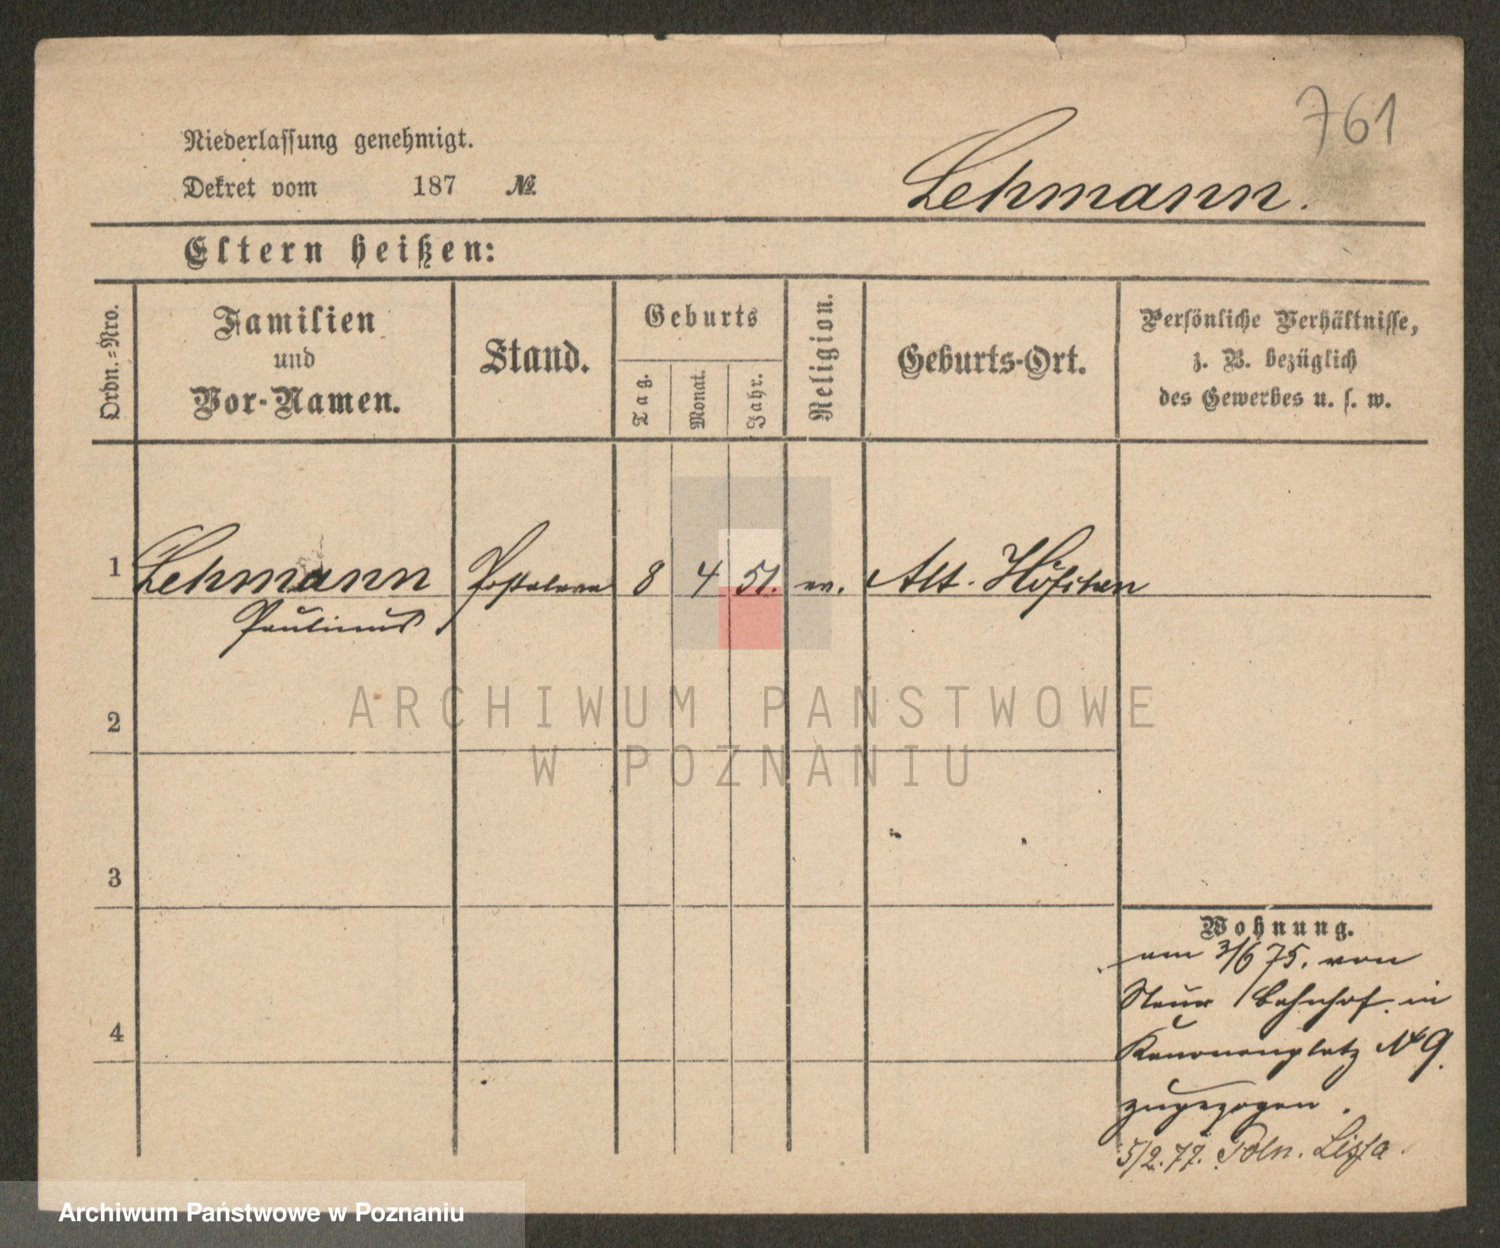 761
Niederlassung genehmigt.
Dekret vom 187 №
Lehmann.
Eltern heißen:
Ordn.=Nro.
Familien
und
Vor-Namen.
Stand.
Geburts
Tag.
Monat.
Jahr.
Religion.
Geburts-Ort.
Persönliche Verhältnisse,
z. B. bezüglich
des Gewerbes u. s. w.
1 Lehmann 8 4 51. ev. Alt-
Paulinus
ARCHIWUM PAŃSTWOWE
W POZNANIU
2
3
4
Wohnung.
am 3/6 75. von
Bahnhof in
Kanonenplatz № 9.
zugezogen.
5/2. 77. Poln. Lissa.
Archiwum Państwowe w Poznaniu